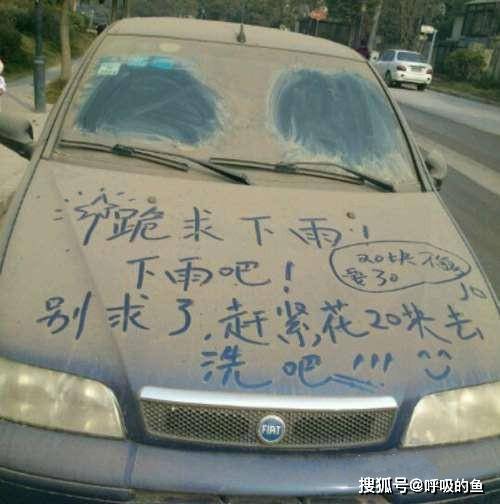 跪求下雨!
下雨吧!
20块不够
要30
别求了,赶紧,花20块去
洗吧!!!
FIAT
搜狐号@呼吸的鱼